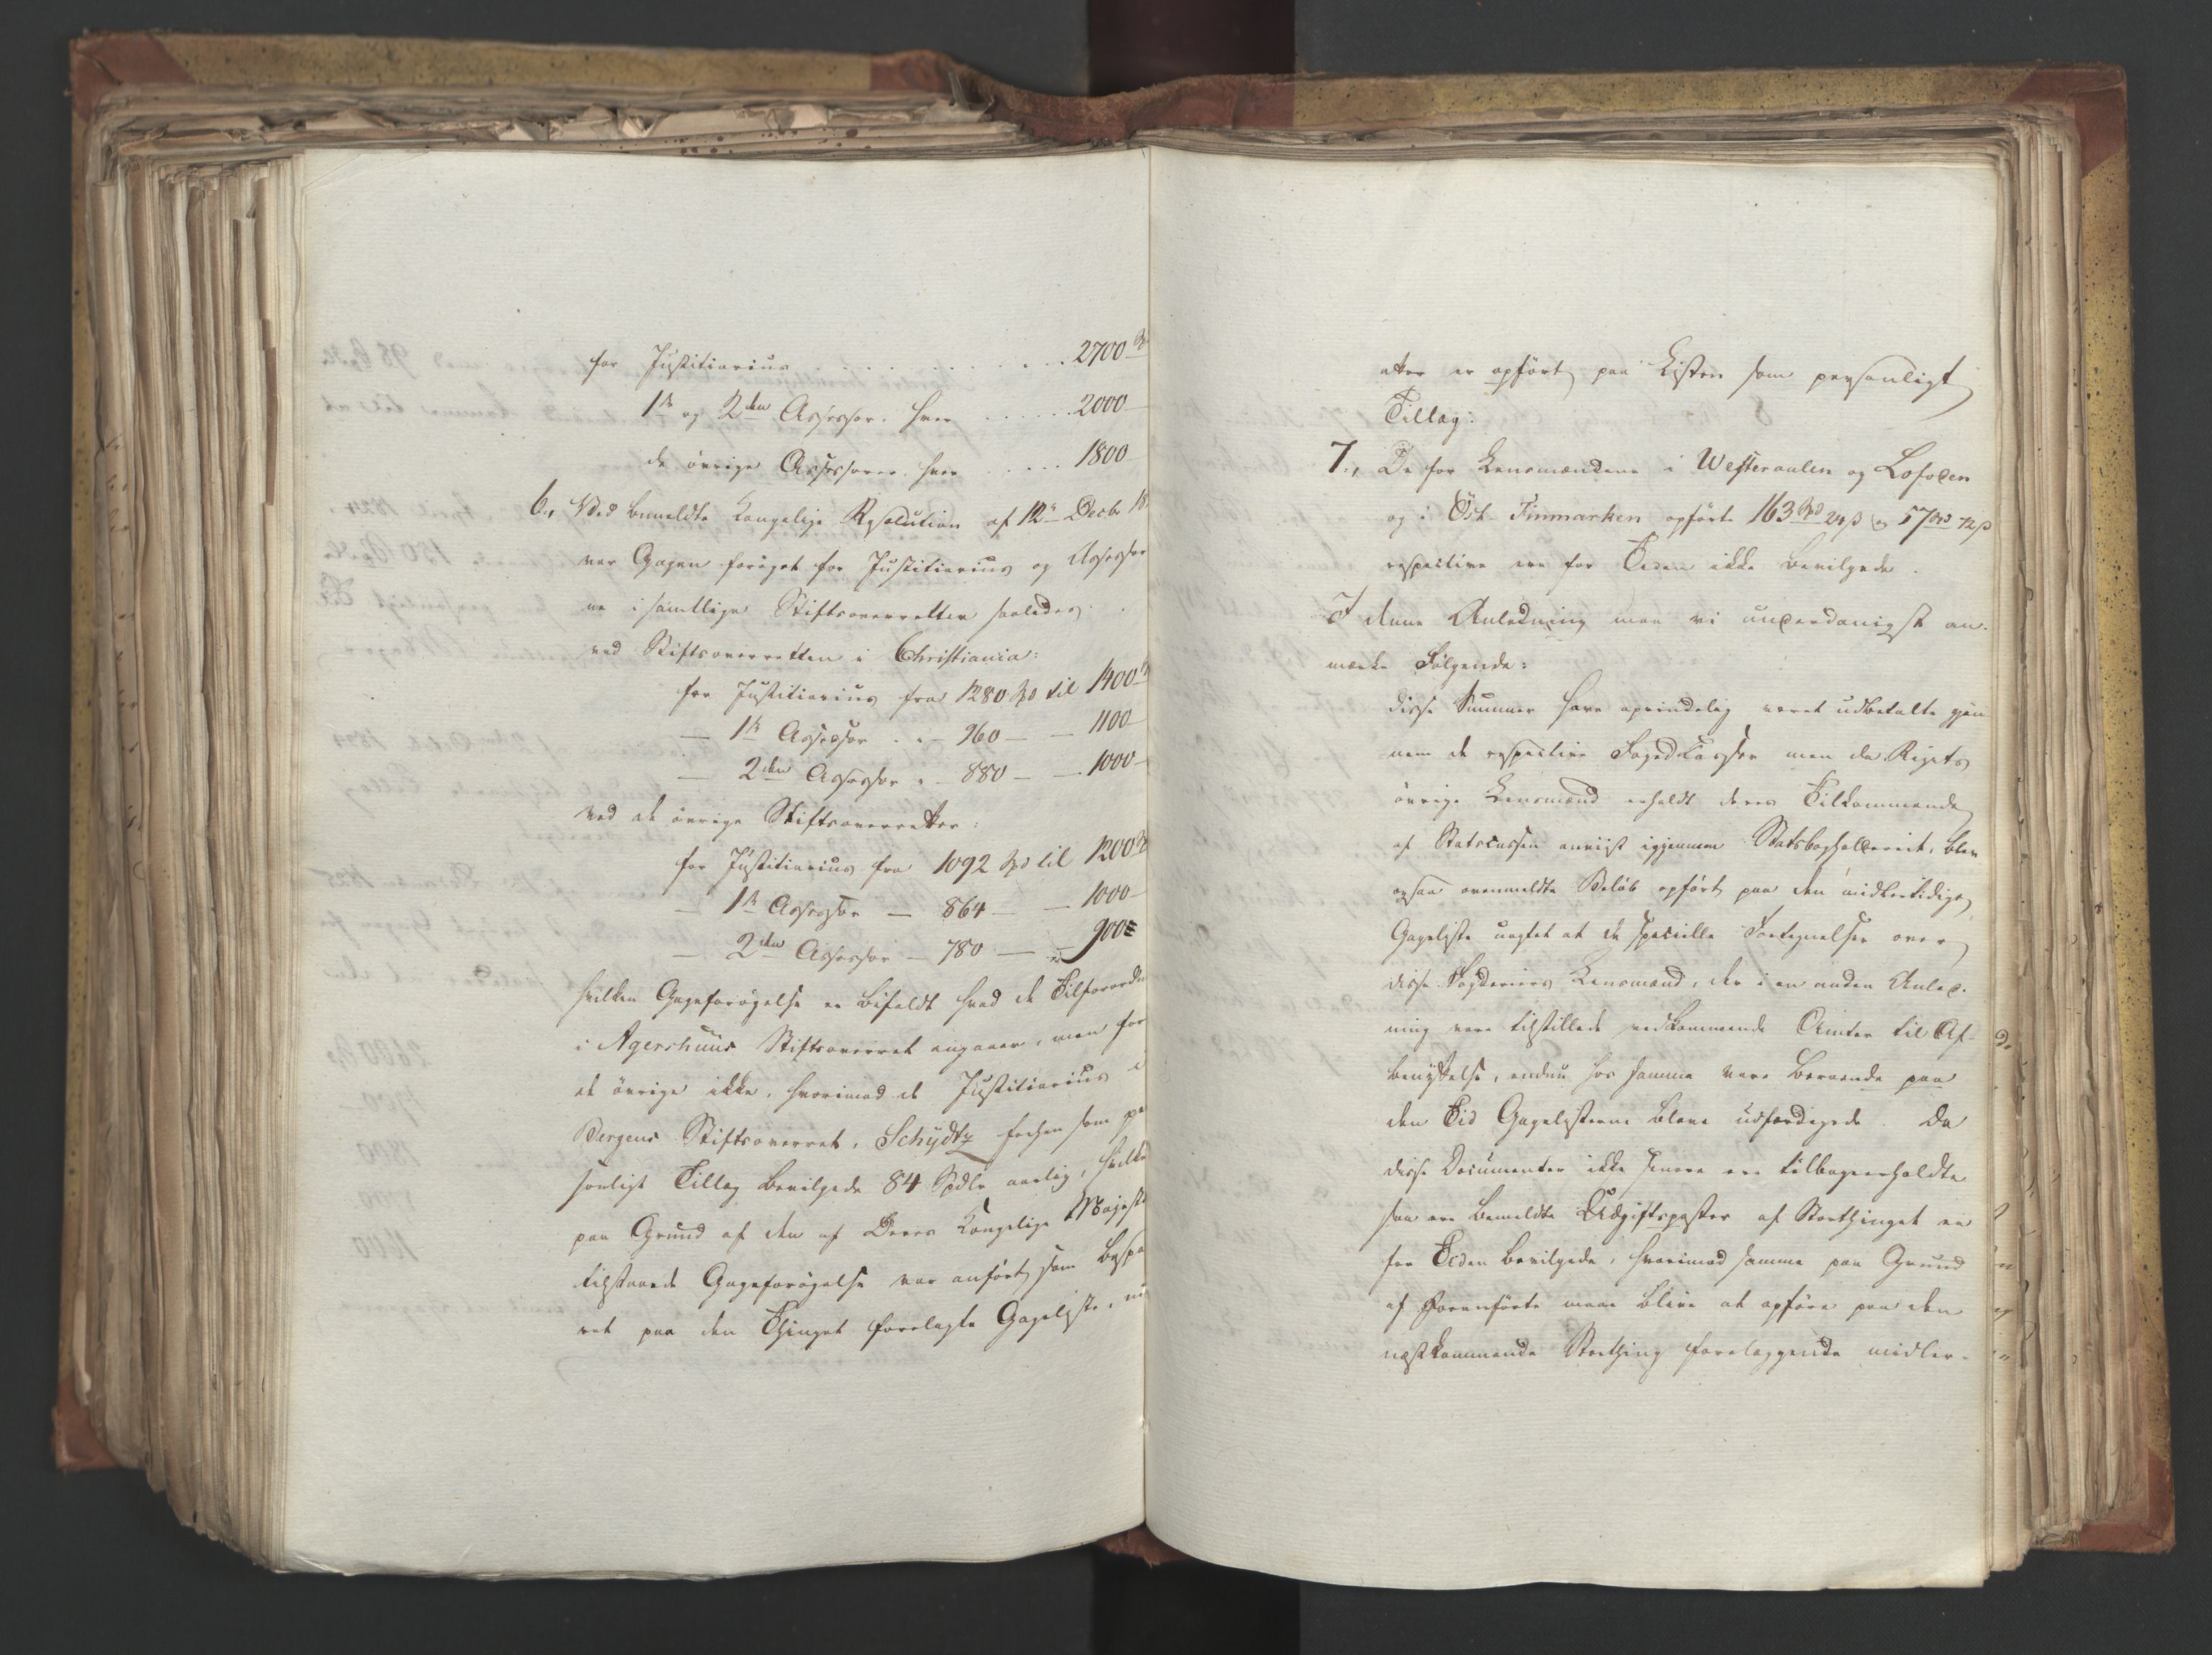 for Justitiarius . . . . . . . . . 2700 Spd
1ste og 2den Assessor, hver . . . . . 2000 —
de øvrige Assessorer, hver . . . . 1800
6., Ved bemeldte Kongelige Resolution af 12te Decbr 18
var Gagen forøget for Justitiarius og Assessor
ne i samtlige Stiftsoverretter saaledes:
ved Stiftsoverretten i Christiania:
for Justitiarius fra 1280 Spd til 1400
— 1ste Assessor . - 960 — — 1100 —
— 2den Assessor - 880 — — 1000 —
ved de øvrige Stiftsoverretter:
for Justitiarius fra 1092 Spd til 1200
— 1ste Assessor — 864 — — 1000 —
— 2den Assessor — 780 — — 900
hvilken Gageforøgelse er bifaldt hvad de Tilforordn
i Agershuus Stiftsoverret angaaer, men for
de øvrige ikke, hvorimod de Justitiarius i
Bergens Stiftsoverret, Schydtz forhen som per
sonligt Tillæg bevilgede 84 Spdlr aarlig, hvilke
paa Grund af den af Deres Kongelige Majestæ
tilstaaede Gageforøgelse var anført som bespa
ret paa den Thinget forelagte Gageliste, nu
atter er opført paa Listen som personligt
Tillæg:
7., De for Lensmændene i Westeraalen og Lofoden
og i Öst-Finmarken opførte 163 Spd 24 ß og 57 Spd 72 ß
respective ere for Tiden ikke bevilgede.
I denne Anledning maa vi underdanigst an-
mærke Følgende:
disse Summer have oprindelig været udbetalte gjen
nem de respective Fogedkasser men da Rigets
øvrige Lensmænd erholdt deres Tilkommende
af Statscassen anviist igjennem Statsbogholderiet, blev
ogsaa ovenmeldte Beløb opført paa den midlertidige
Gageliste uagtet at de specielle Fortegnelser over
disse Fogderiers Lensmænd, der i en anden Anled-
ning vare tilstillede vedkommende Amter til Af-
benyttelse, endnu hos samme vare beroende paa
den Tid Gagelisterne bleve udfærdigede. Da
disse Documenter ikke senere ere tilbageerholdte
saa ere bemeldte Udgiftsposter af Storthinget ei
for Tiden bevilgede, hvorimod samme paa Grund
af foranførte maae blive at opføre paa den
næstkommende Storthing forelæggende midler-